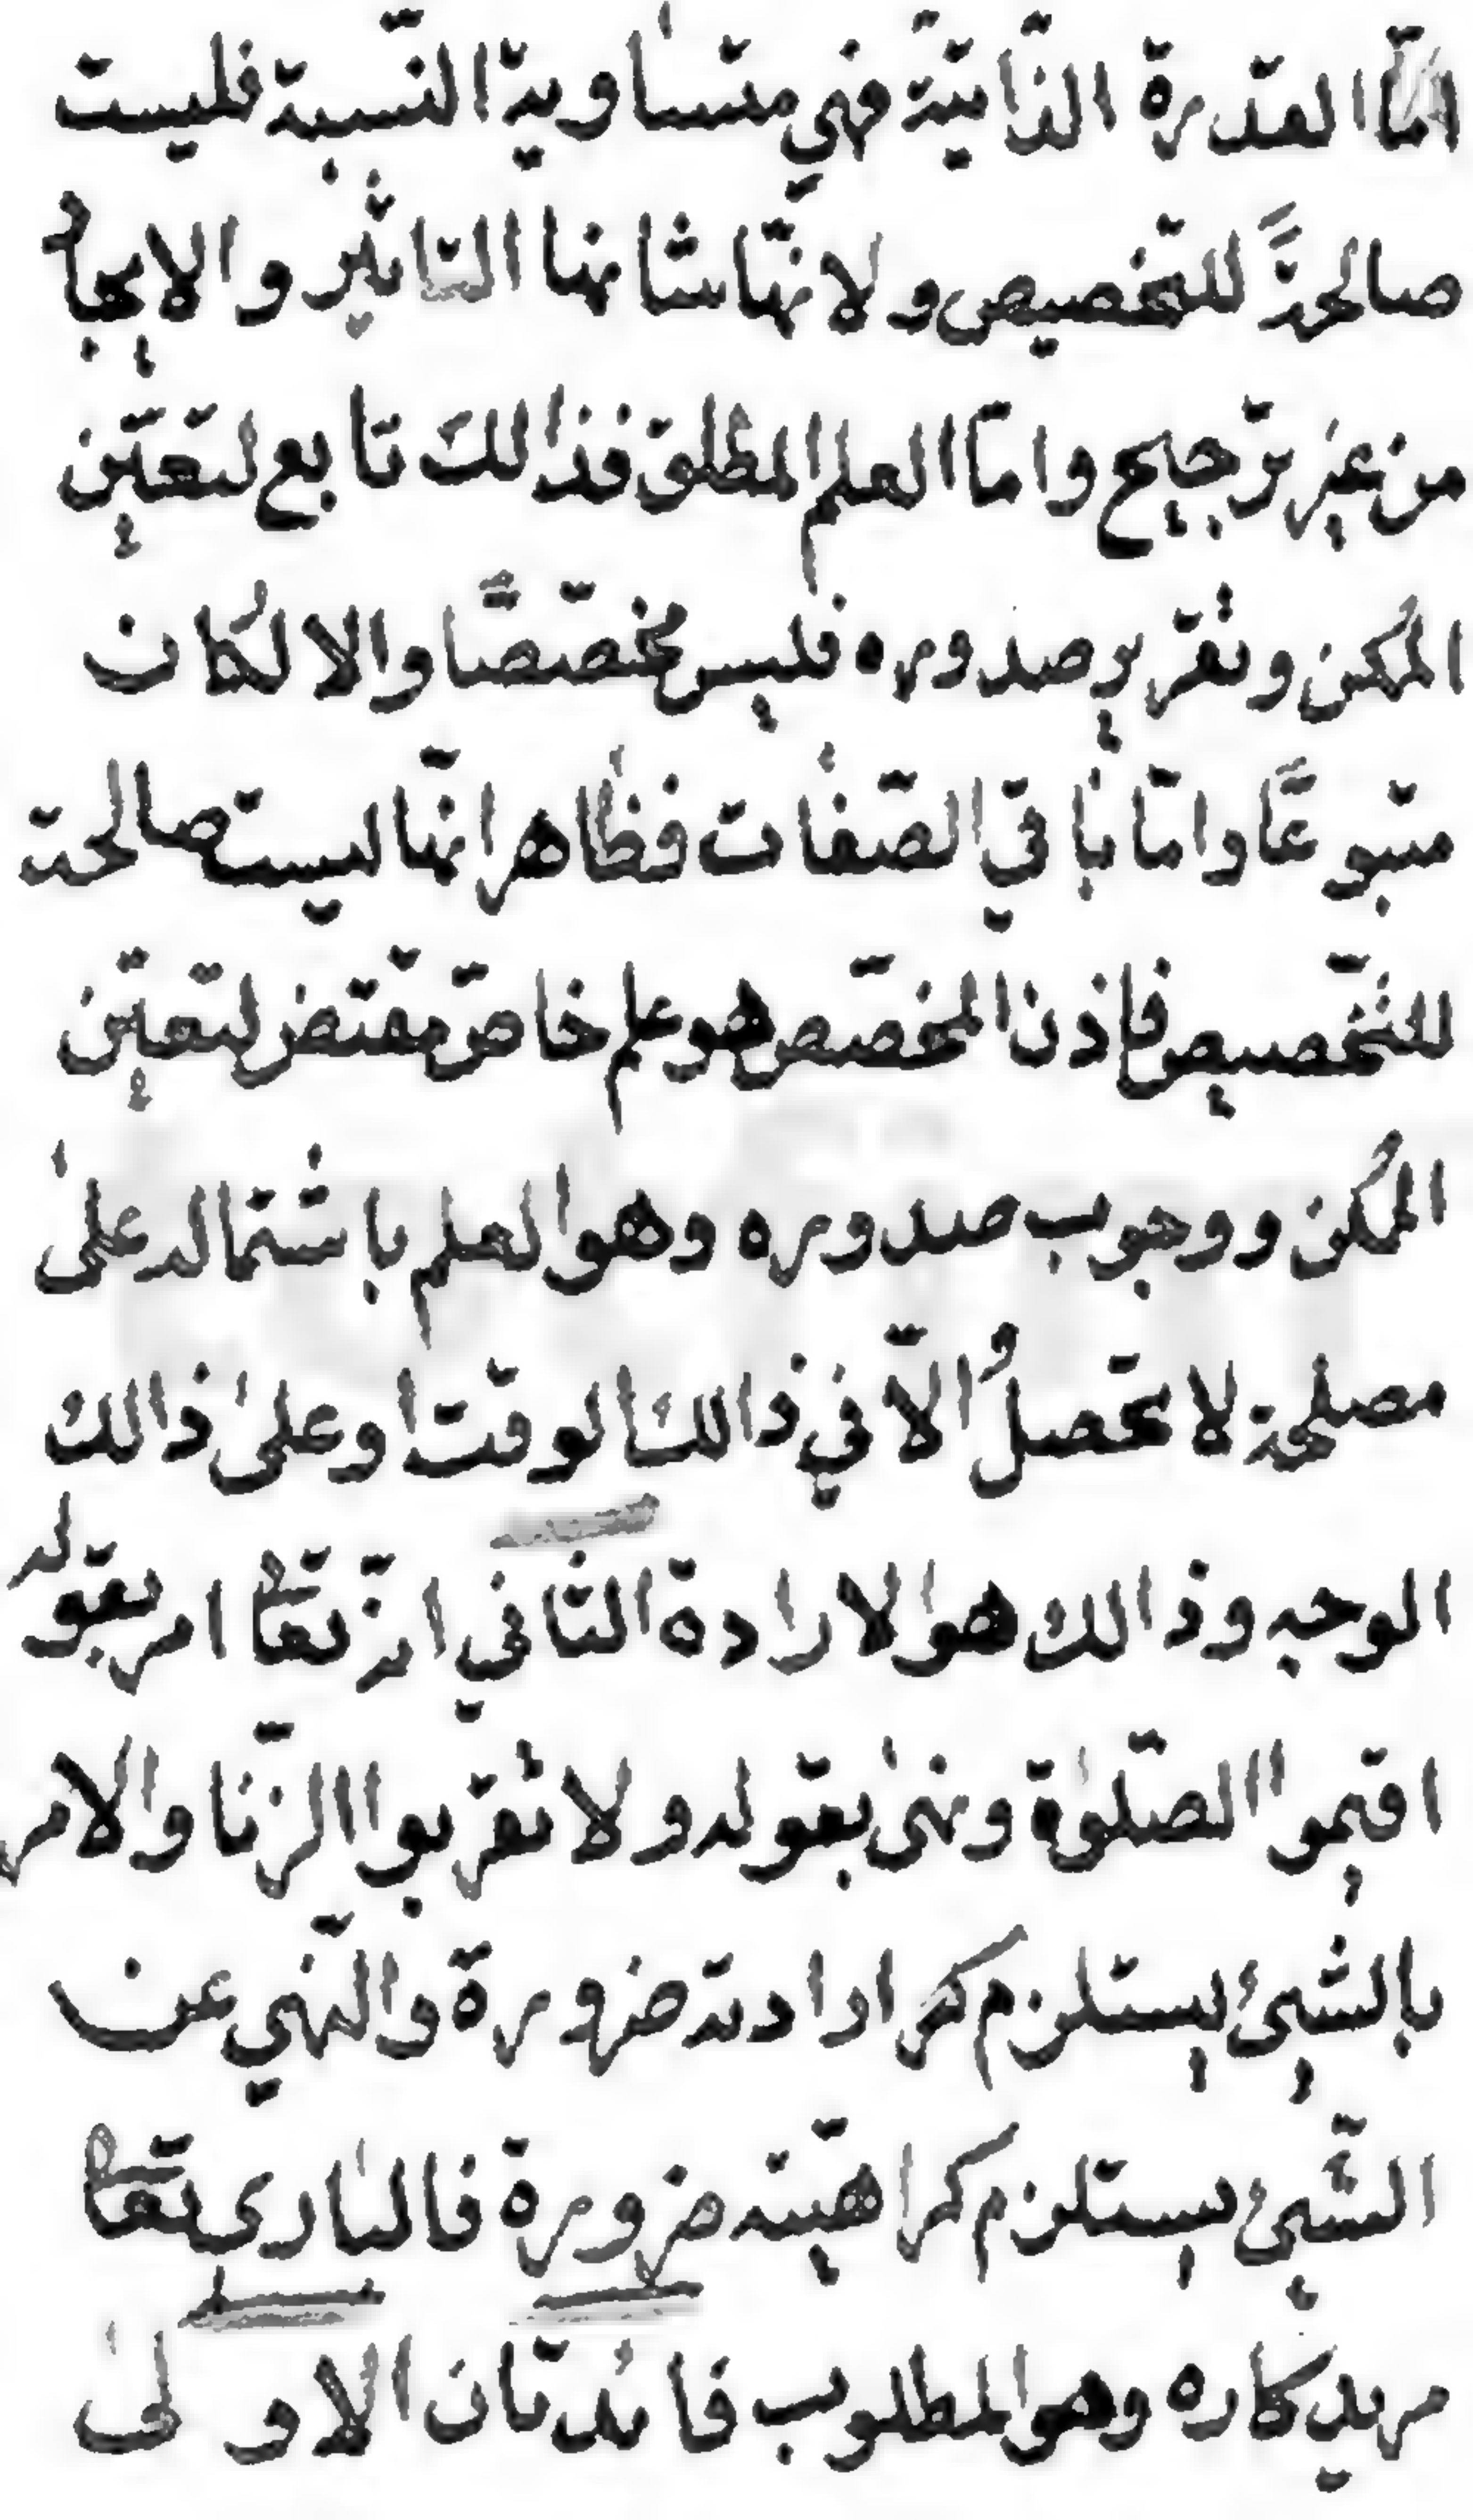 امّا القدرة الذّاتيّة فهي متساوية النّسبة فليست
صالحةً للتخصيص ولانّها شانها التّاثير والايجاد
من غير ترجيح وامّا العلم المطلق فذالك تابع لتعيّن
الممكن وتقرير صدوره فليس مخصّصًا والا لكان
متبوعًا وامّا باقي الصّفات فظاهر انّها ليست صالحة
للتّخصيص فاذن المخصّص هو علم خاصّ مقتض لتعيّن
الممكن ووجوب صدوره وهو العلم باشتماله على
مصلحة لا تحصلُ الّا في ذالك الوقت او على ذالك
الوجه وذالك هو الارادة الثّاني انّه تعالى امر بقوله
اقيموا الصّلوة ونهى بقوله ولا تقربوا الزّنا والامر
بالشّيئ يستلزم ارادته ضرورة والنّهي عن
الشّيئ يستلزم كراهيّته ضرورة فالباري تعالى
مريد كاره وهو المطلوب فائدتان الاولى